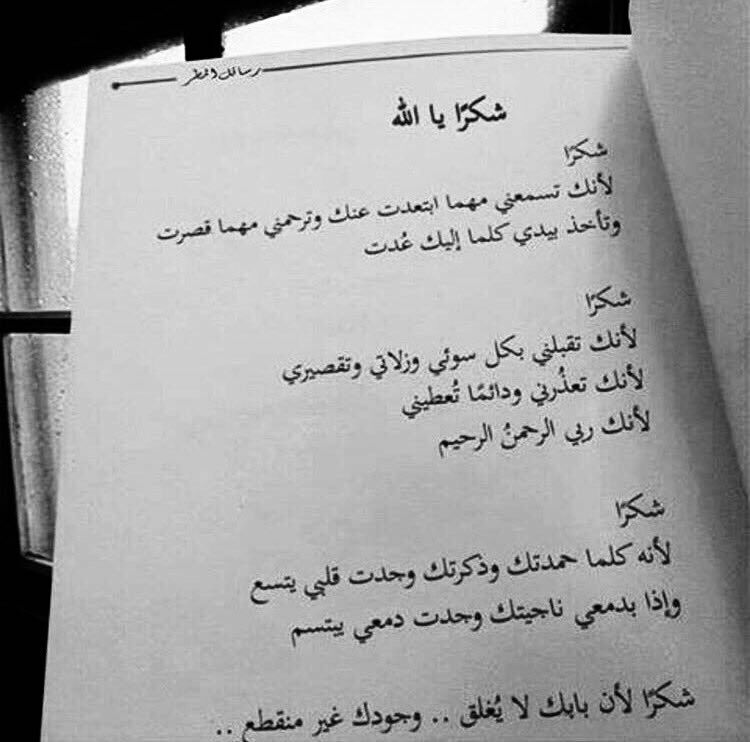 رسائل المطر
شكرًا يا الله
شكرًا
لأنك تسمعني مهما ابتعدت عنك وترحمني مهما قصرت
وتأخذ بيدي كلما إليك عُدت
شكرًا
لأنك تقبلني بكل سوئي وزلاتي وتقصيري
لأنك تعذُرني ودائمًا تُعطيني
لأنك ربي الرحمنُ الرحيم
شكرًا
لأنه كلما حمدتك وذكرتك وجدت قلبي يتسع
وإذا بدمعي ناجيتك وجدت دمعي يبتسم
شكرًا لأن بابك لا يُغلق .. وجودك غير منقطع ..